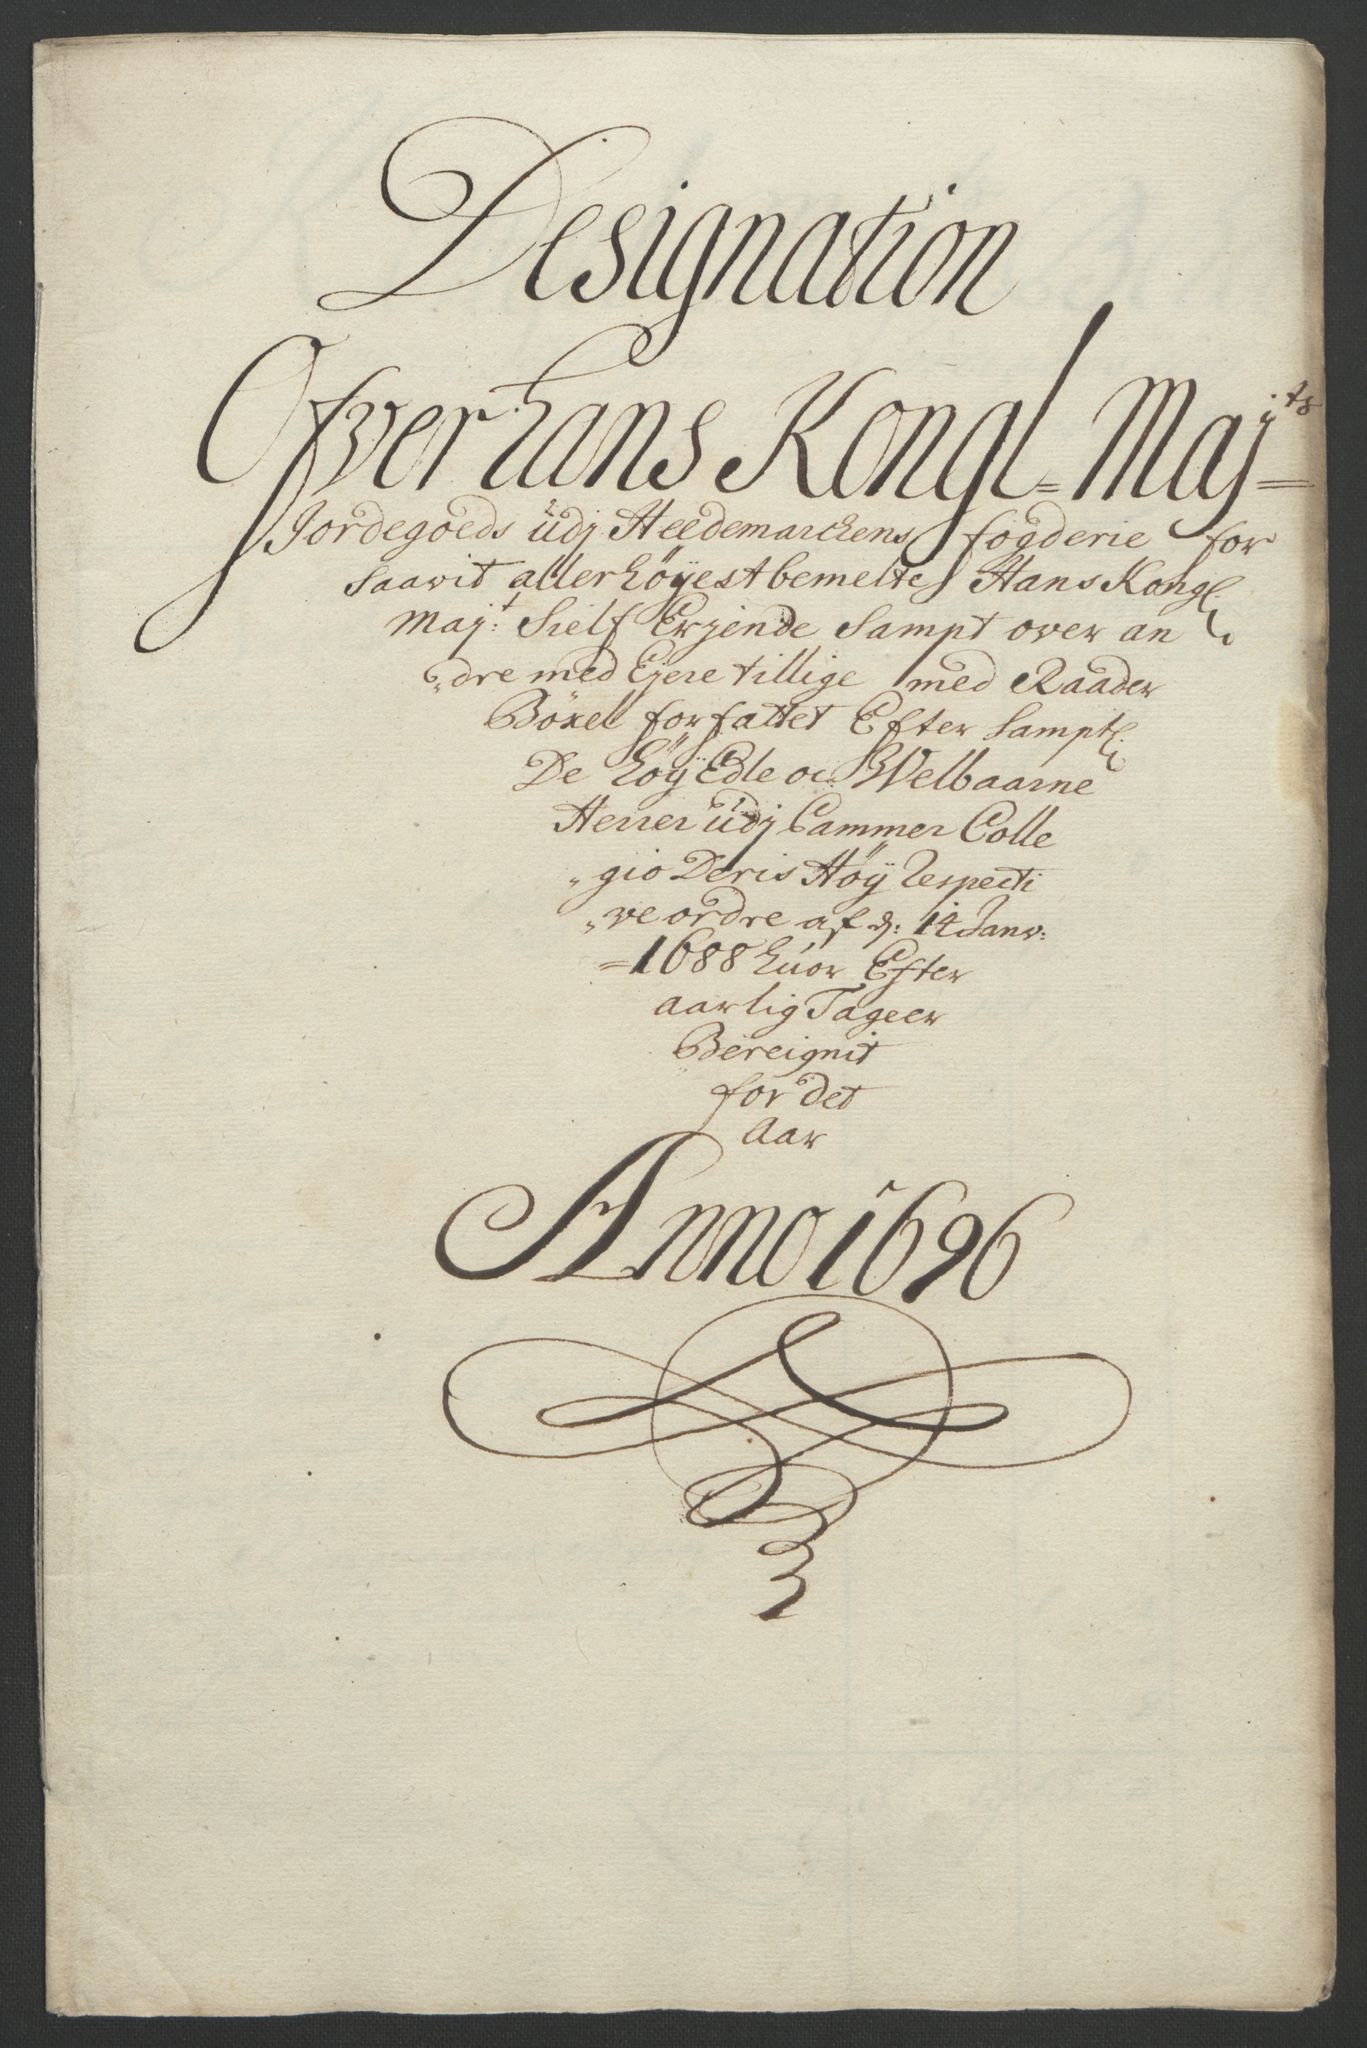 Designation
Ofver hans Kongl= Maj^ts=
Jordegoeds üdj Heedemarckens fogderie for
saavit allerhöÿestbemelte Hans Kongl:
Maj^t: Sielf Erjende Sampt over an
„dre med Ejere tillige med Raader
Böxel forfattet Efter Sampt:
De höÿ Edle oc Welbaarne
Herrer üdj Cammer Colle
„gio Deris Höÿ Respecti
„ve ordre af d: 14 Janv:
=1688 huor Efter
aarlig Tageer
Bereignit
for det
Aar
Anno 1696